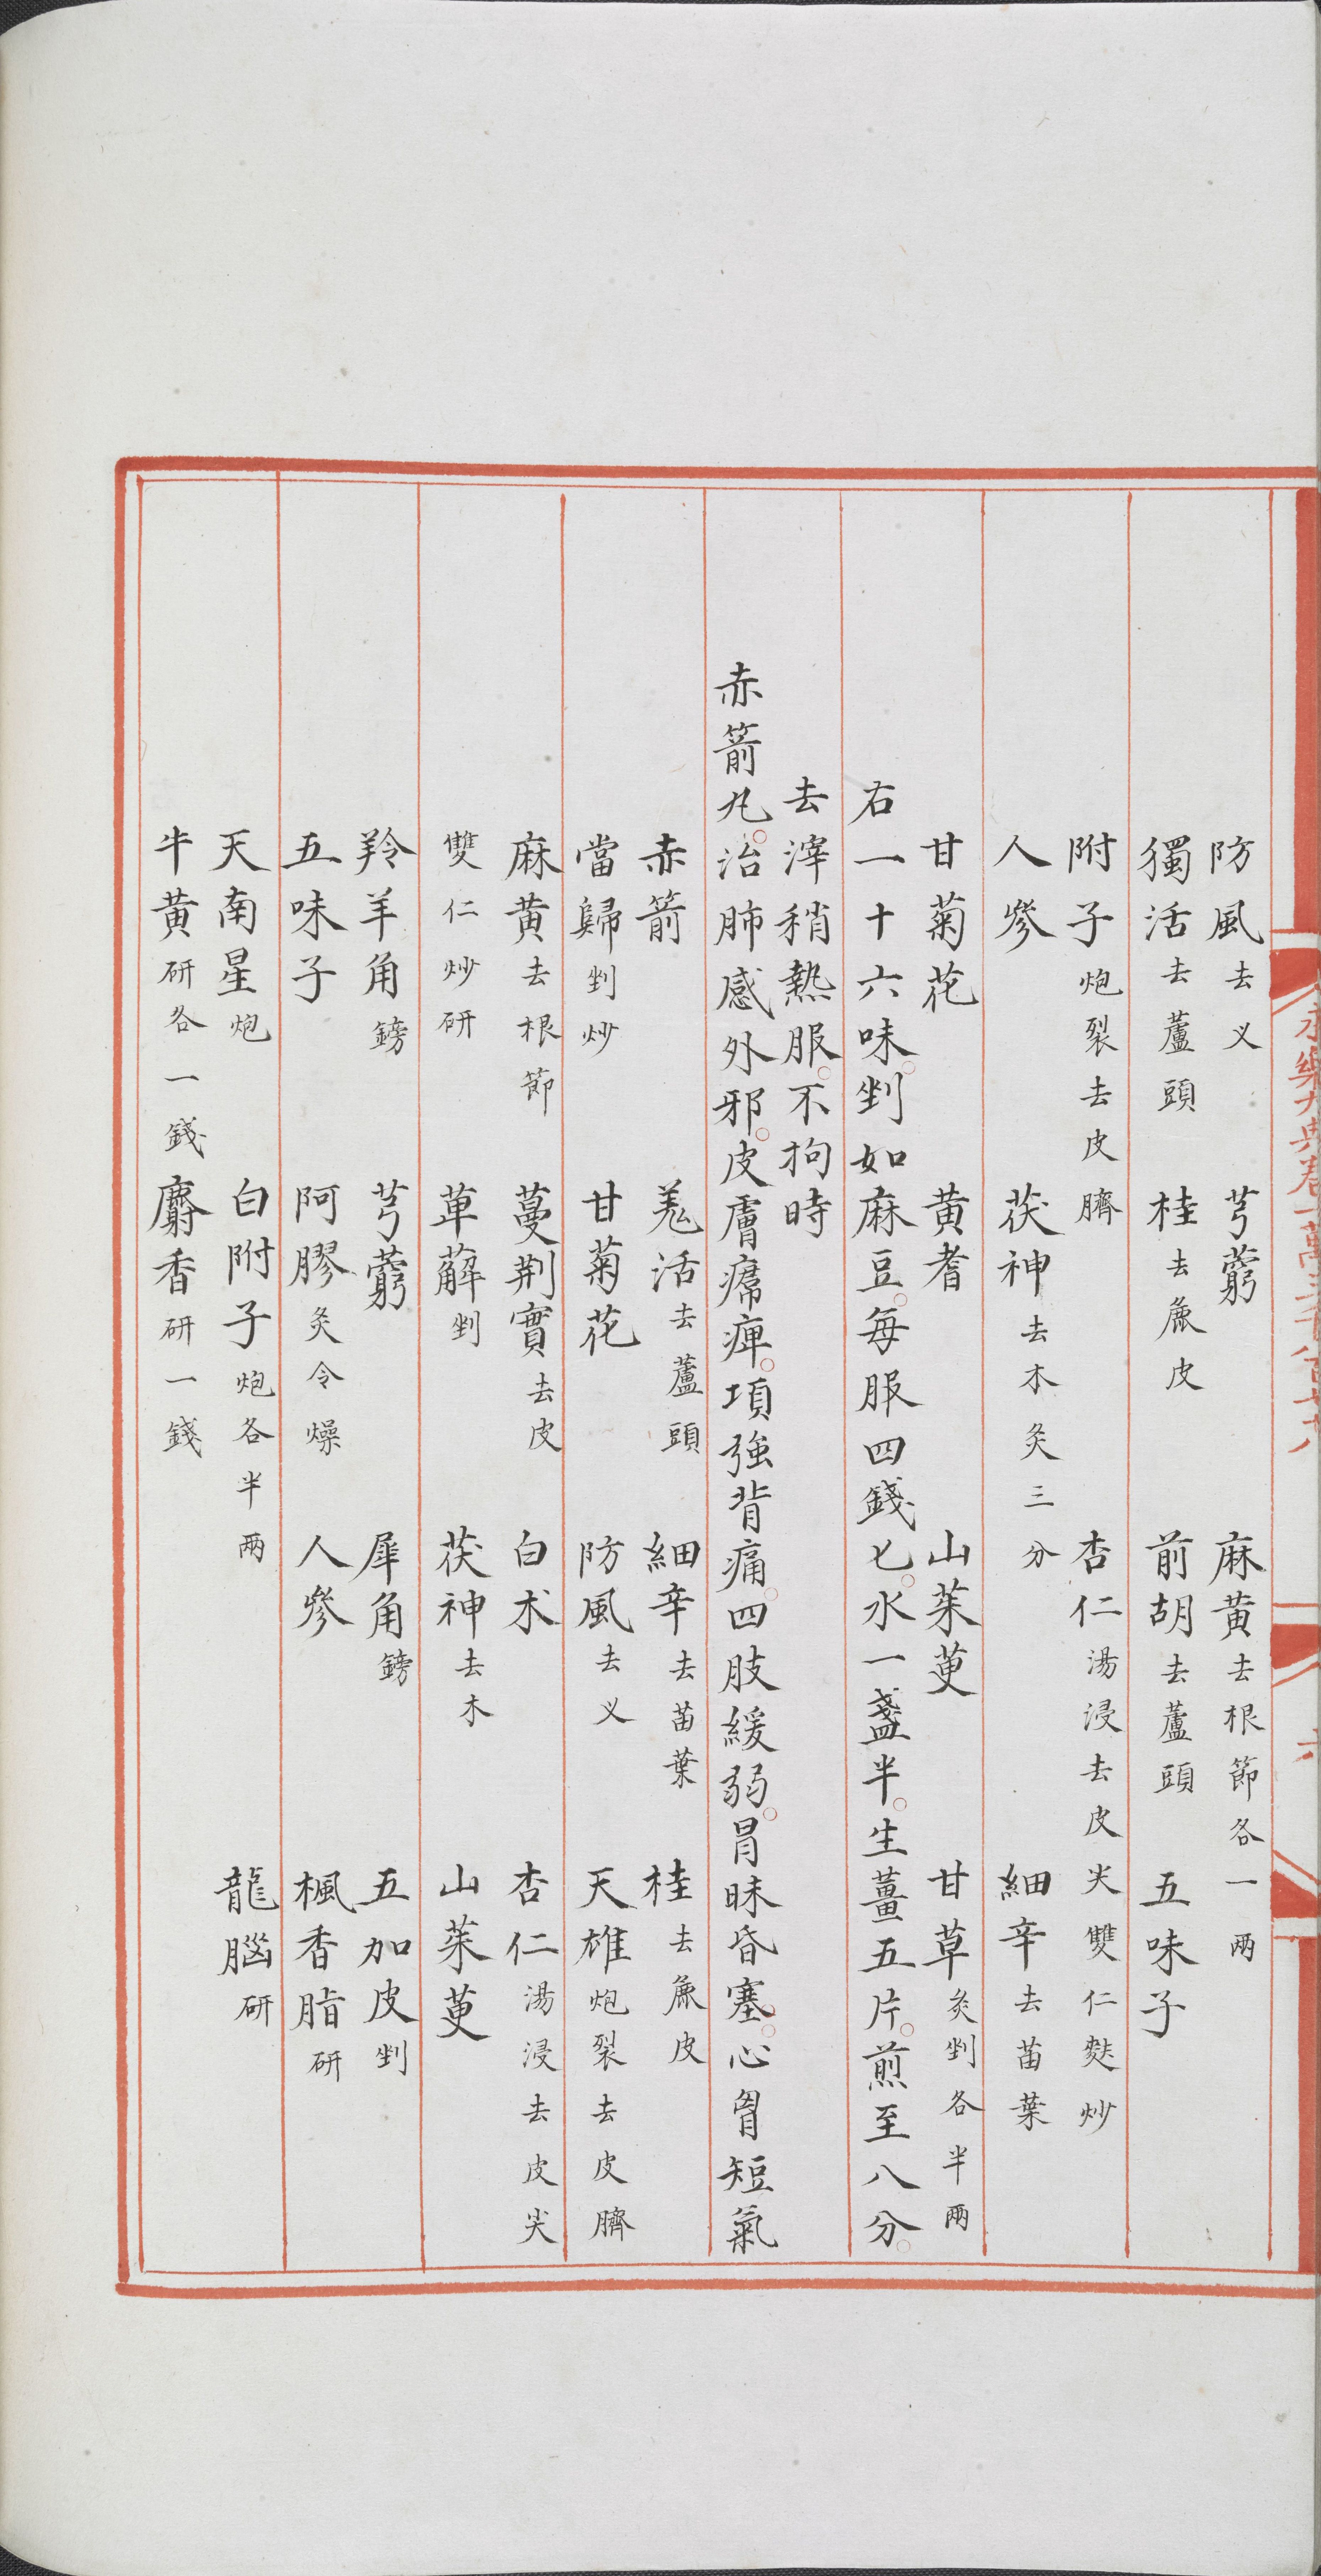 永樂大典卷一萬三千八百七十八
六
防風去义 芎藭 麻黄去根節各一兩
獨活去蘆頭 桂去麄皮 前胡去蘆頭 五味子
附子炮裂去皮臍 杏仁湯浸去皮尖雙仁麩炒
人參 茯神去木炙三分 細辛去苗葉
甘菊花 黄耆 山茱萸 甘草炙剉各半兩
右一十六味。剉如麻豆。每服四錢匕。水一盞半。生薑五片。煎至八分。
去滓稍熱服。不拘時
赤箭丸。治肺感外邪。皮膚㿏痺。項強背痛。四肢緩弱。冐昧昏塞。心胷短氣
赤箭 羗活去蘆頭 細辛去苗葉 桂去麄皮
當歸剉炒 甘菊花 防風去义 天雄炮裂去皮臍
麻黄去根節 蔓荆實去皮 白术 杏仁湯浸去皮尖
雙仁炒研 萆薢剉 茯神去木 山茱萸
羚羊角鎊 芎藭 犀角鎊 五加皮剉
五味子 阿膠炙令燥 人參 楓香脂研
天南星炮 白附子炮各半兩 龍腦研
牛黄研各一錢 麝香研一錢